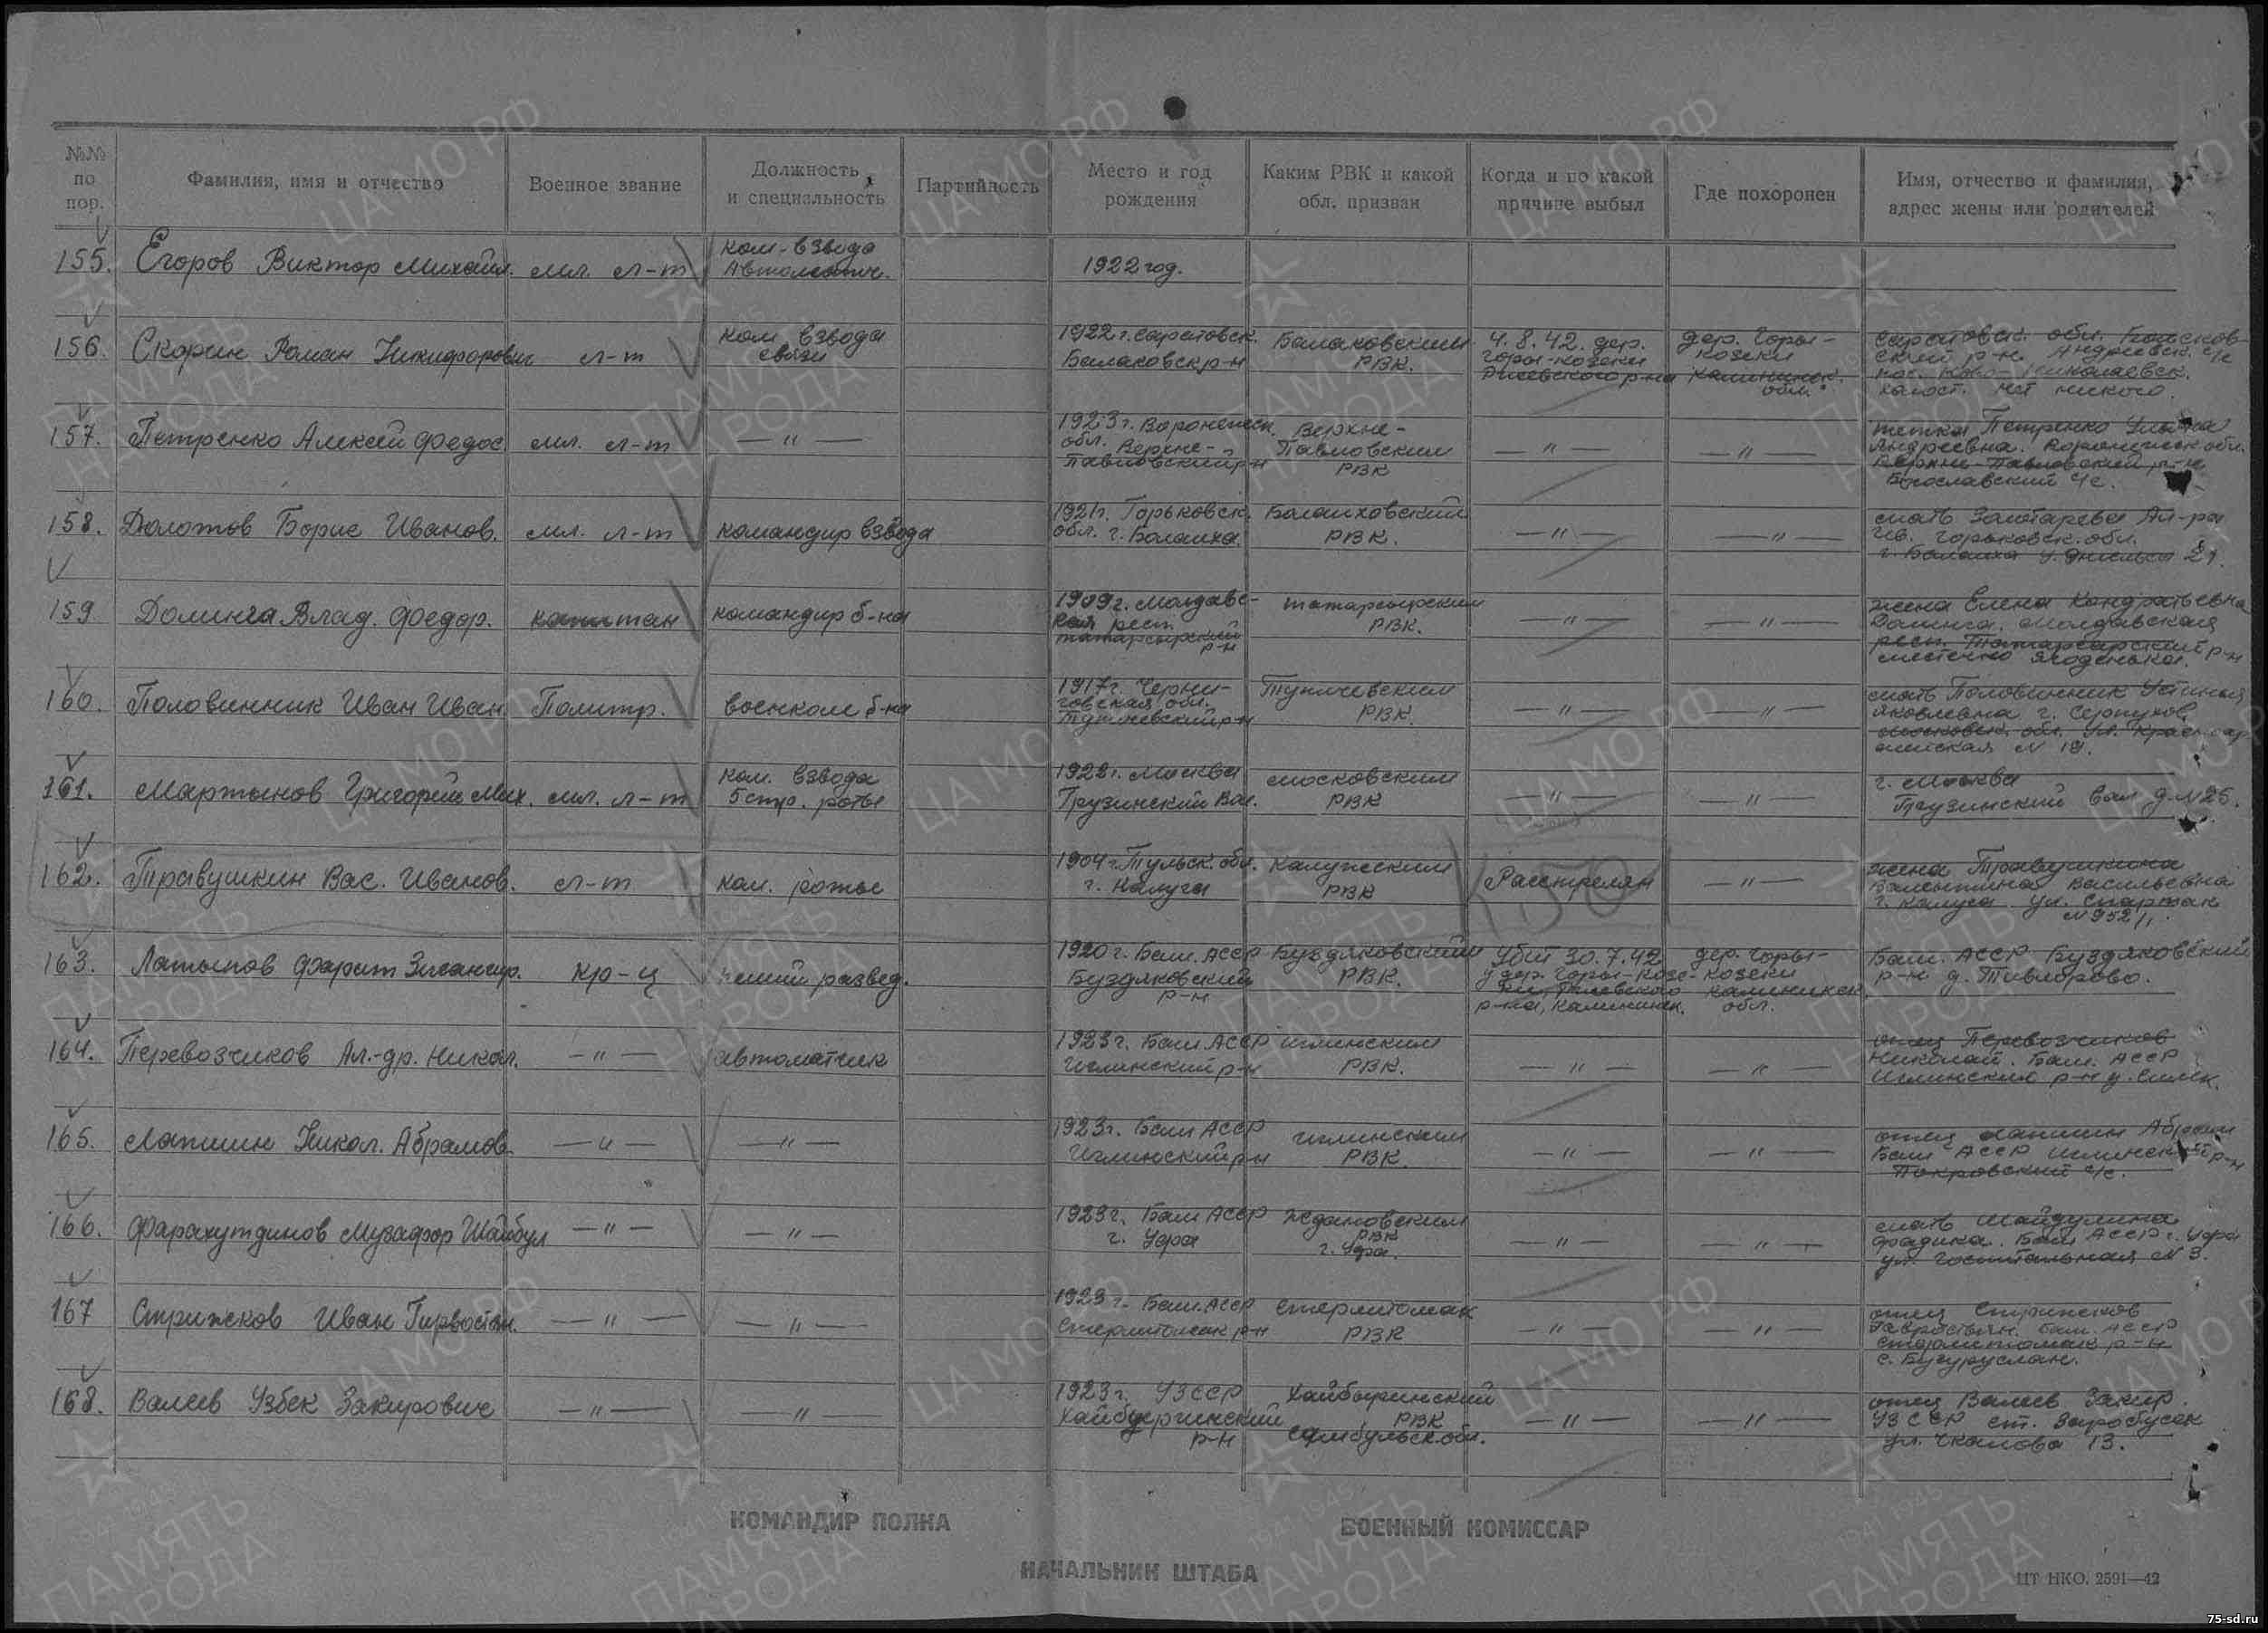 №№ по пор.
Фамилия, имя и отчество
Военное звание
Должность и специальность
Партийность
Место и год рождения
Каким РВК и какой обл. призван
Когда и по какой причине выбыл
Где похоронен
Имя, отчество и фамилия, адрес жены или родителей
155. Егоров Виктор Михайл. мл. л-т ком-взвода Автоматч. 1922 год.
156. Скорин Роман Никифорович л-т ком. взвода связи 1922 г. Саратовск. Балаковск р-н Балаковским РВК. 4.8.42. дер. Горы-Козеки Ржевского р-на дер. Горы-Козеки Калининск. обл. Саратовск. обл. р-н. Андреевск. с/с пос. Ново-Николаевск. холост. нет никого.
157. Петренко Алексей Федос. мл. л-т —〃— 1923 г. Воронежск. обл. Верхне-Павловский р-н Верхне-Павловским РВК —〃— —〃— тетка Петренко Андреевна. Воронежск обл. Верхне-Павловский р-н Богославский с/с.
158. Долотов Борис Иванов. мл. л-т командир взвода 1921г. Горьковск. обл. г. Балахна. Балахновский РВК. —〃— —〃— мать Золотарева Ал-ра Ив. Горьковск. обл. г. Балахна 21.
159 Долинга Влад. Федор. капитан командир б-на 1909 г. Молдавс-кая респ. р-н РВК. —〃— —〃— жена Елена Кондратьевна Долинга. Молдавская респ. р-н местечко
160. Половинник Иван Иван. Политр. военком б-на 1917г. Черни-говская обл. р-н РВК. —〃— —〃— мать Половинник Устинья Яковлевна г. Серпухов Московск. обл. ул. № 18.
161. Мартынов Григорий Мих. мл. л-т ком. взвода 5 стр. роты 1922 г. Москва Грузинский Вал. Московским РВК —〃— —〃— г. Москва Грузинский вал д. №26.
162. Травушкин Вас. Иванов. л-т ком. роты 1904 г. Тульск. обл. г. Калуга Калужским РВК Расстрелян —〃— жена Травушкина Валентина Васильевна г. Калуга ул. Спартак
163. Латыпов Фарит кр-ц пеший развед. 1920 г. Баш. АССР Буздяковский р-н Буздяковский РВК. Убит 30.7.42 у дер. Горы-Козе-ки Ржевского р-на, Калининск. дер. Горы-Козеки Калининск. обл. Баш. АССР Буздяковский р-н д.
164. Перевозчиков Ал-др. Никол. —〃— автоматчик 1923 г. Баш. АССР Иглинский р-н Иглинским РВК. —〃— —〃— отец Перевозчиков Николай. Баш. АССР Иглинский р-н
165. Лапшин Никол. Абрамов. —〃— —〃— 1923г. Баш АССР Иглинский р-н Иглинским РВК. —〃— —〃— отец Лапшин Абрам Баш АССР Иглинский р-н Покровский с/с.
166. Фарахутдинов Музафор Шайбул —〃— —〃— 1923 г. Баш АССР г. Уфа Ждановским РВК г. Уфа. —〃— —〃— мать Баш АССР г. Уфа ул. Госпитальная № 3.
167 Стрижков Иван —〃— —〃— 1923 г. Баш. АССР Стерлитомак р-н Стерлитомак РВК —〃— —〃— отец Стрижков Баш. АССР Стерлитомак р-н с. Бугуруслан.
168. Валеев Узбек Закирович —〃— —〃— 1923 г. УзССР р-н РВК —〃— —〃— отец Валеев Закир. УзССР ст. ул. Чкалова 13.
КОМАНДИР ПОЛКА
ВОЕННЫЙ КОМИССАР
НАЧАЛЬНИК ШТАБА
ЦТ НКО. 2591—42
ЦА МО РФ
ПАМЯТЬ НАРОДА
1941-1945
75-sd.ru